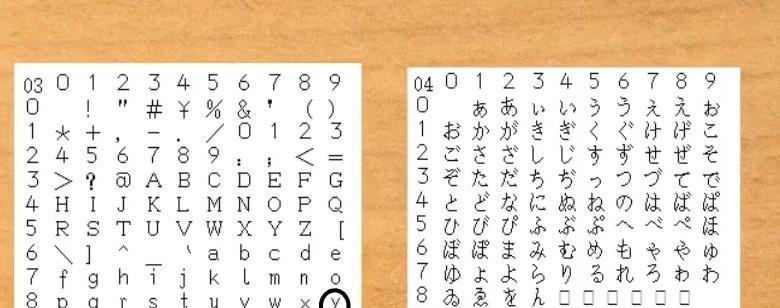 03 0 1 2 3 4 5 6 7 8 9
0 ! " # ¥ % & ' ( )
1 * + , - . / 0 1 2 3
2 4 5 6 7 8 9 : ; < =
3 > ? @ A B C D E F G
4 H I J K L M N O P Q
5 R S T U V W X Y Z [
6 \ ] ^ _ ` a b c d e
7 f g h i j k l m n o
8 p q r s t u v w x y
04 0 1 2 3 4 5 6 7 8 9
0 ぁ あ ぃ い ぅ う ぇ え ぉ
1 お か が き ぎ く ぐ け げ こ
2 ご さ ざ し じ す ず せ ぜ そ
3 ぞ た だ ち ぢ っ つ づ て で
4 と ど な に ぬ ね の は ば ぱ
5 ひ び ぴ ふ ぶ ぷ へ べ ぺ ほ
6 ぼ ぽ ま み む め も ゃ や ゅ
7 ゆ ょ よ ら り る れ ろ ゎ わ
8 ゐ ゑ を ん □ □ □ □ □